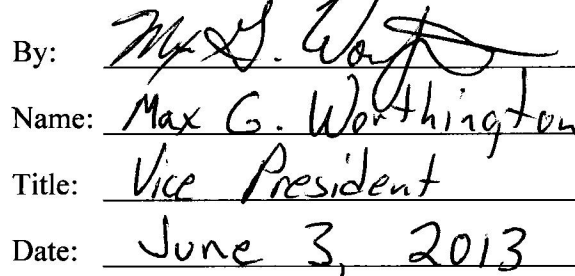 By: Max G. Wor
Name: Max G. Worthington
Title: Vice President
Date: June 3, 2013